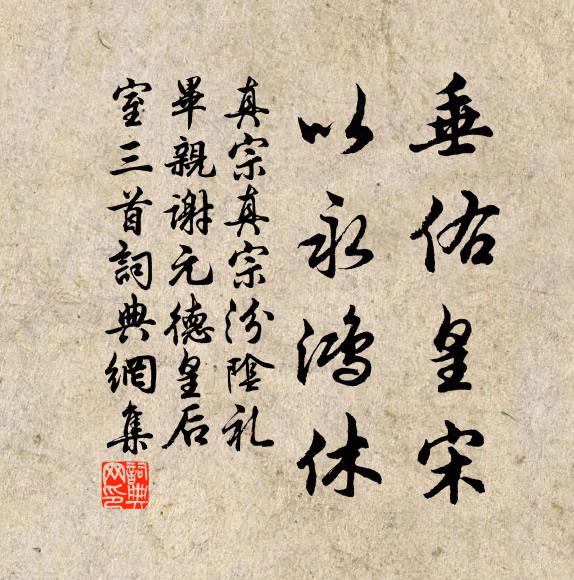 垂佑皇宋
以永鴻休
真宗真宗汾陰礼
畢親谢元德皇后
室三首詞典網集
詞典网印